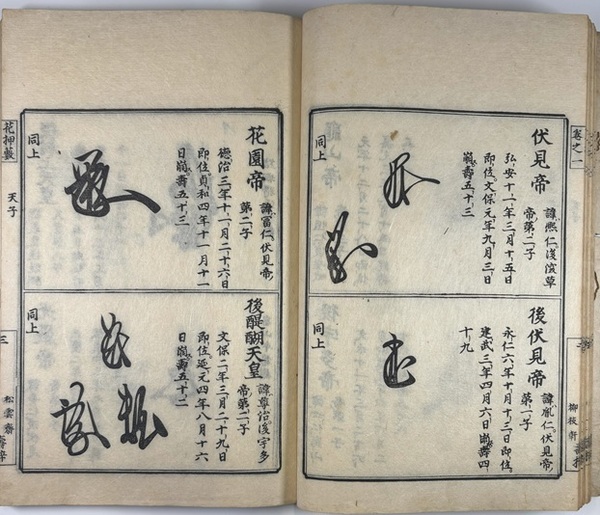 卷之一
柳枝軒
伏見帝
諱熈仁。後深草
帝第二子
弘安十一年三月十五日
即位。文保元年九月三日
崩。壽五十三
同上
後伏見帝
諱胤仁。伏見帝
第一子
永仁六年十月十三日即位
建武三年四月六日崩壽四
十九
同上
花園帝
諱富仁。伏見帝
第二子
德治三年十一月二十六日
即位貞和四年十一月十一
日崩壽五十三
同上
後醍醐天皇
諱尊治後宇多
帝第二子
文保二年三月二十九日
即位延元四年八月十六
日崩壽五十二
同上
花押藪
天子
三
松雲齋